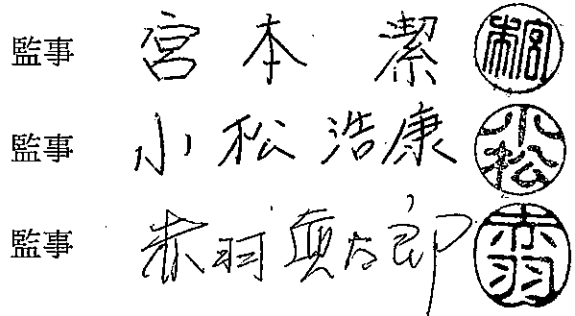 監事 宮本 潔 宮本
監事 小松浩康 小松
監事 赤羽眞太郎 赤羽